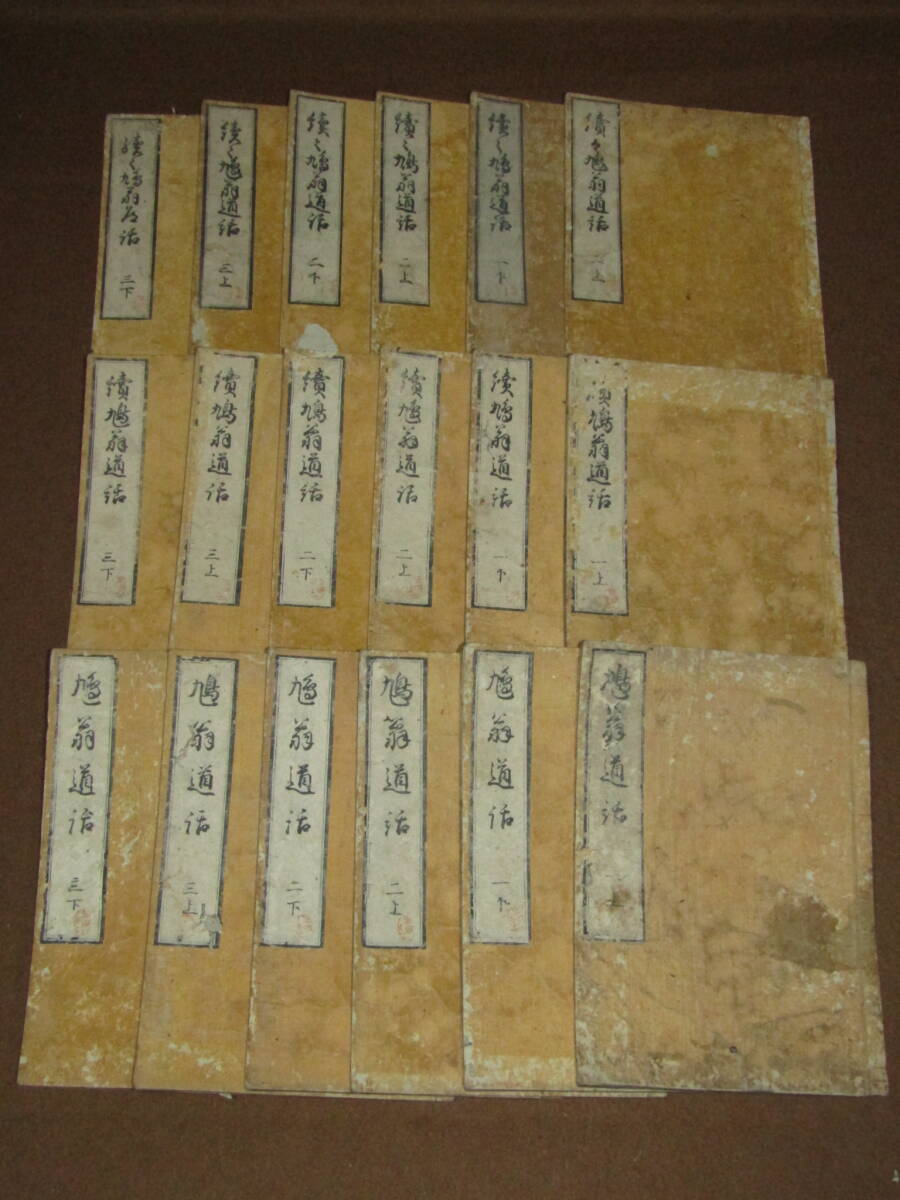 續々鳩翁道話 上
續々鳩翁道話 一下
續々鳩翁道話 二上
續々鳩翁道話 二下
續々鳩翁道話 三上
續々鳩翁道話 三下
續鳩翁道話 一上
續鳩翁道話 一下
續鳩翁道話 二上
續鳩翁道話 二下
續鳩翁道話 三上
續鳩翁道話 三下
鳩翁道話
鳩翁道話 一下
鳩翁道話 二上
鳩翁道話 二下
鳩翁道話 三上
鳩翁道話 三下